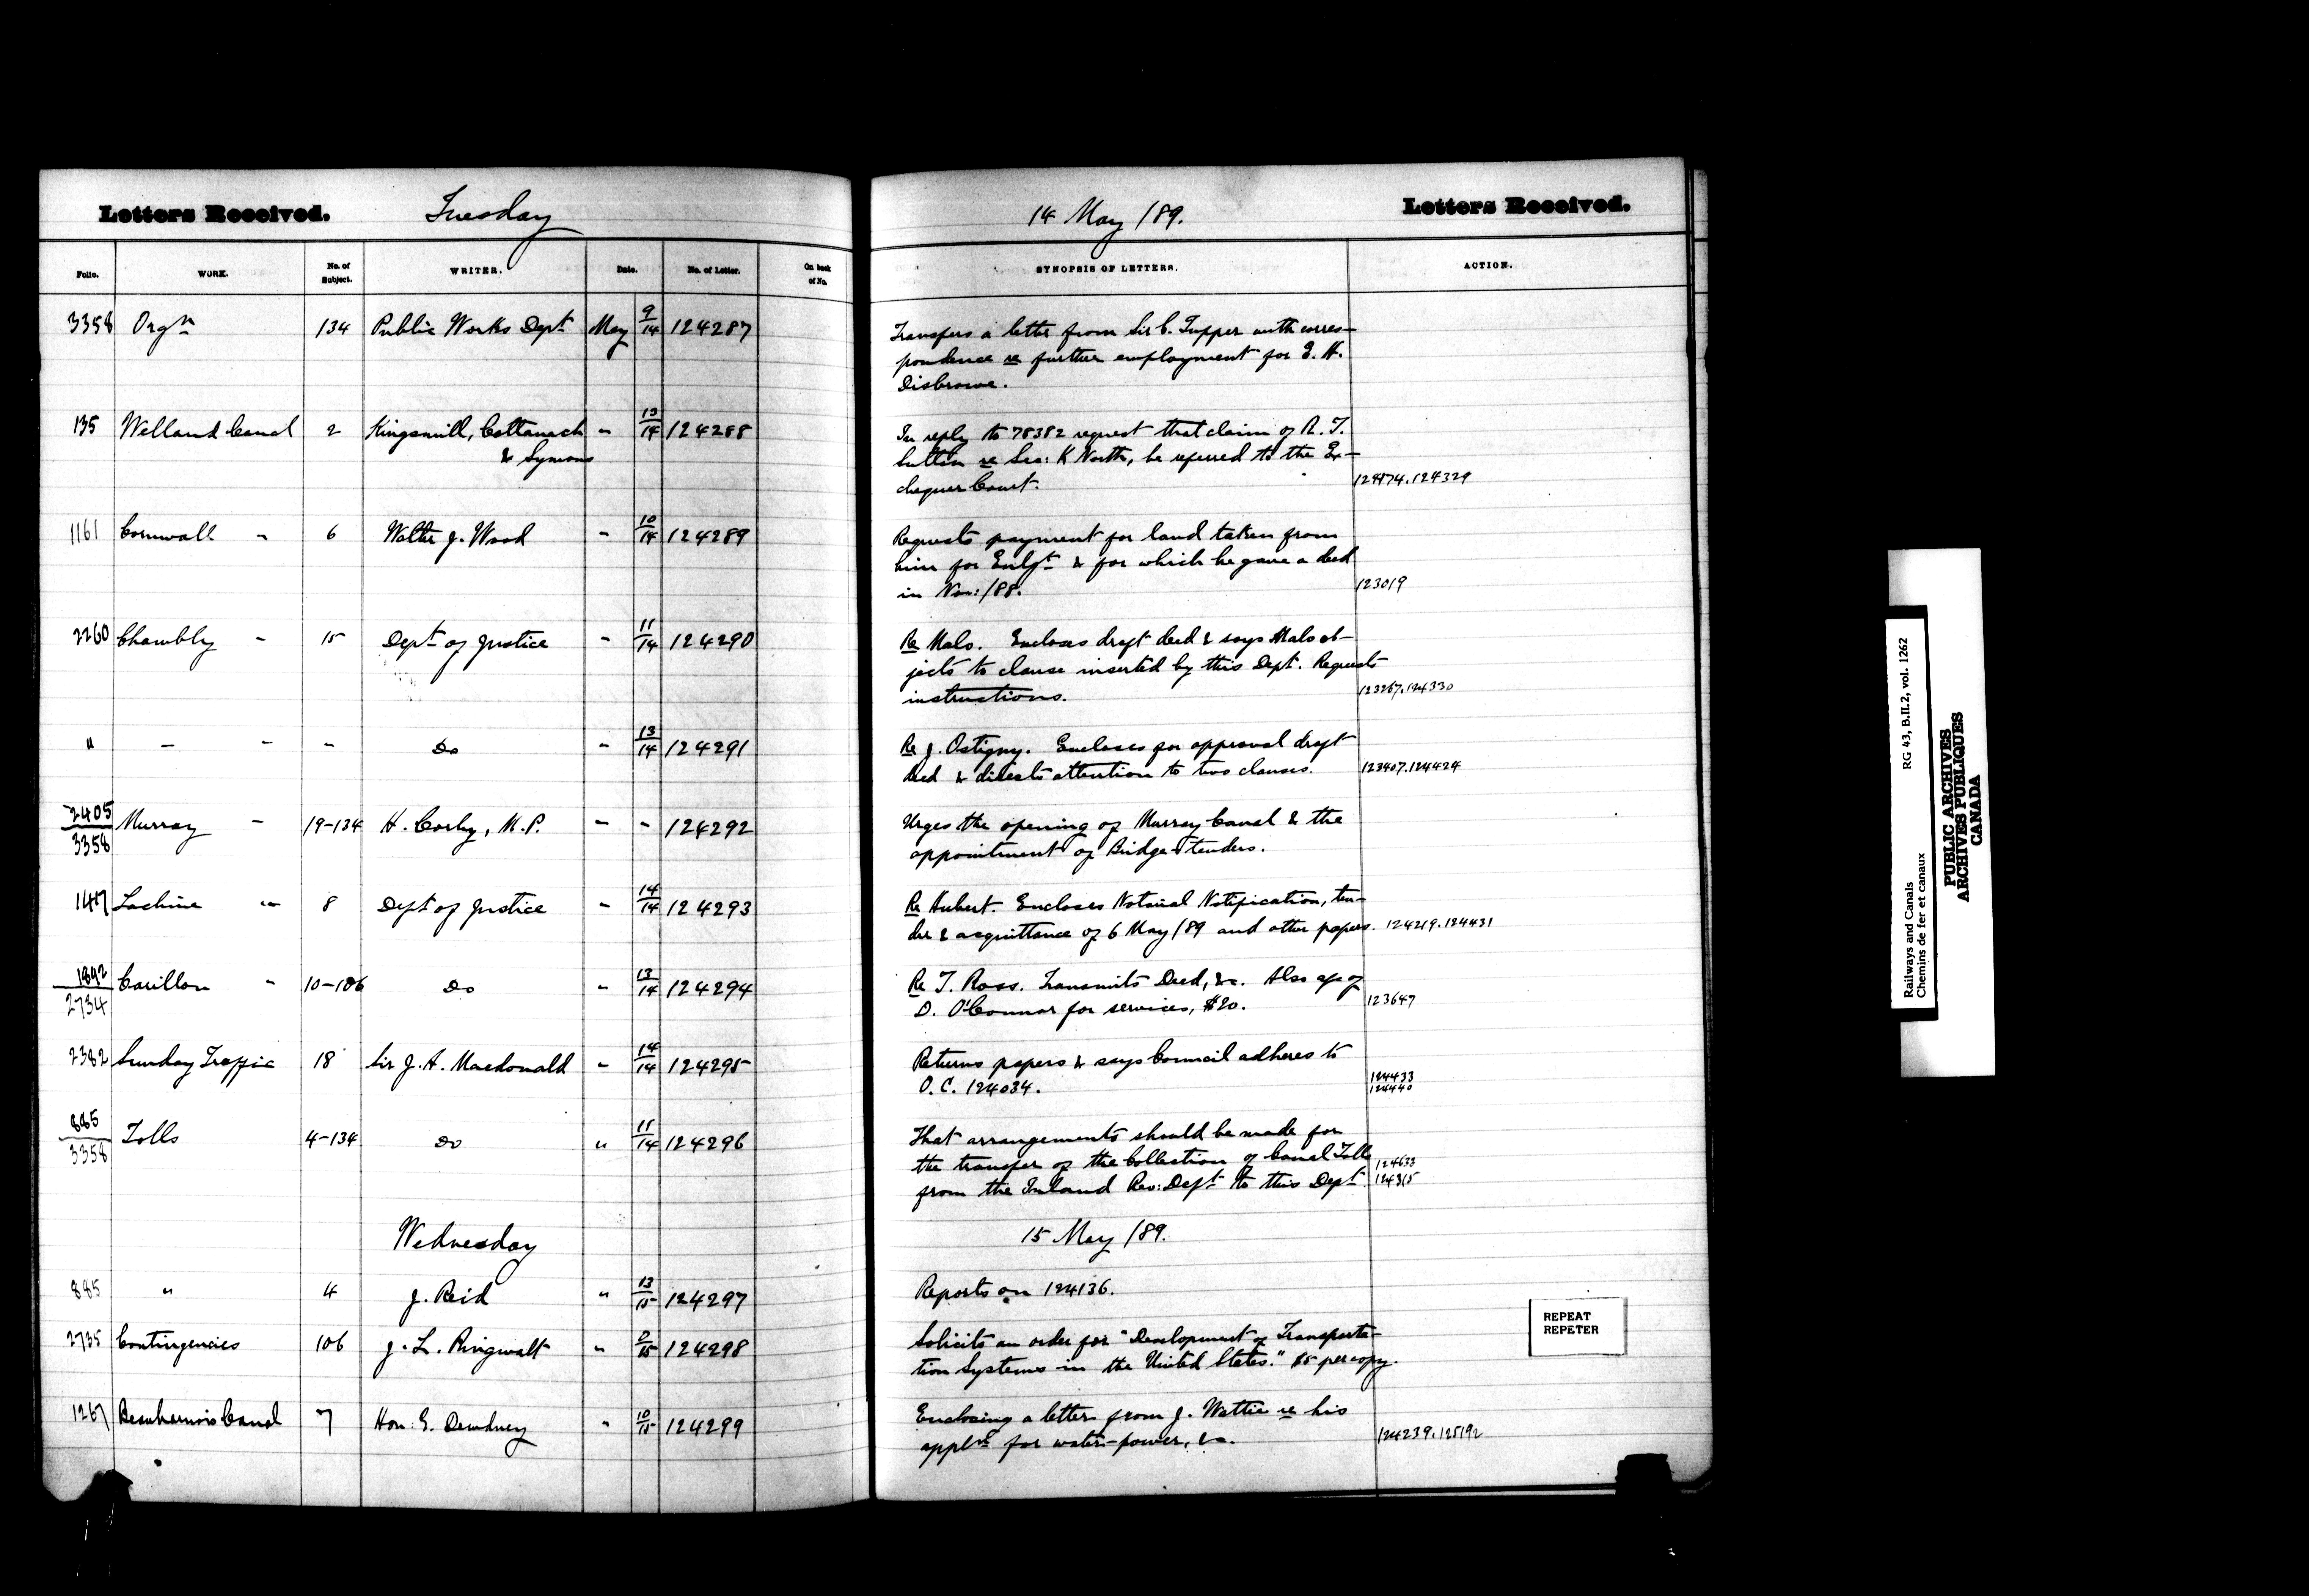 Letters Received. Tuesday 14 May /89. Letters Received.
Folio. WORK. No. of Subject. WRITER. Date. No. of Letter. On back of No. SYNOPSIS OF LETTERS. ACTION.
3358 Orgn 134 Public Works Dept May 9/14 124287 Transfers a letter from Sir C. Tupper with corres-
pondence re further employment for E. H.
Disbrowe.
135 Welland Canal 2 Kingsmill, Cattanach " 13/14 124288 In reply to 78382 request that claim of R. T.
& Symons Sutton re Sec: K North, be referred to the Ex-
chequer Court. 124329
1161 Cornwall " 6 Walter J. Wood " 10/14 124289 Requests payment for land taken from
him for Enlgt & for which he gave a deed
in Nov: /88. 123019
2260 Chambly " 15 Dept of Justice " 11/14 124290 Re Malo. Encloses draft deed & says Malo ob-
jects to clause inserted by this Dept. Requests
instructions. 123267.124330
" " " " Do " 13/14 124291 Re J. Ostigny. Encloses for approval draft
deed & directs attention to two clauses. 123407.124424
2405/3358 Murray " 19-134 H. Corby, M.P. " " 124292 Urges the opening of Murray Canal & the
appointment of Bridge-tenders.
1417 Lachine " 8 Dept of Justice " 14/14 124293 Re Hubert. Encloses Notarial Notification, ten-
der & acquittance of 6 May /89 and other papers. 124219.124431
1892/2734 Carillon " 10-106 Do " 13/14 124294 Re T. Ross. Transmits Deed, &c. Also a/c of
D. O'Connor for services, $20. 123647
2382 Sunday Traffic 18 Sir J. A. Macdonald " 14/14 124295 Returns papers & says Council adheres to
O.C. 124034. 124433
124440
885/3358 Tolls 4-134 Do " 11/14 124296 That arrangements should be made for
the transfer of the Collection of Canal Tolls 124633
from the Inland Rev: Dept to this Dept. 124315
Wednesday 15 May /89.
885 " 4 J. Reid " 13/15 124297 Reports on 124136.
2735 Contingencies 106 J. L. Ringwalt " 124298 Solicits an order for "Development of Transporta-
tion Systems in the United States." $5 per copy.
1267 Beauharnois Canal 7 Hon: E. Dewdney " 10/15 124299 Enclosing a letter from J. Wattie re his
appln for water-power, &c. 124239.125192
REPEAT
REPETER
Railways and Canals RG 43, B.II.2, vol. 1262
Chemins de fer et canaux
PUBLIC ARCHIVES
ARCHIVES PUBLIQUES
CANADA